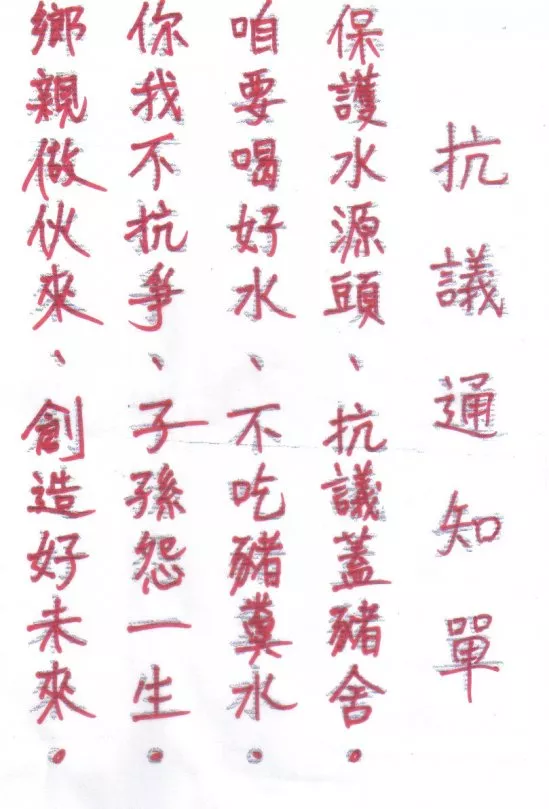 抗議通知單
保護水源頭、抗議蓋豬舍。
咱要喝好水、不吃豬糞水。
你我不抗爭、子孫怨一生。
鄉親做伙來、創造好未來。